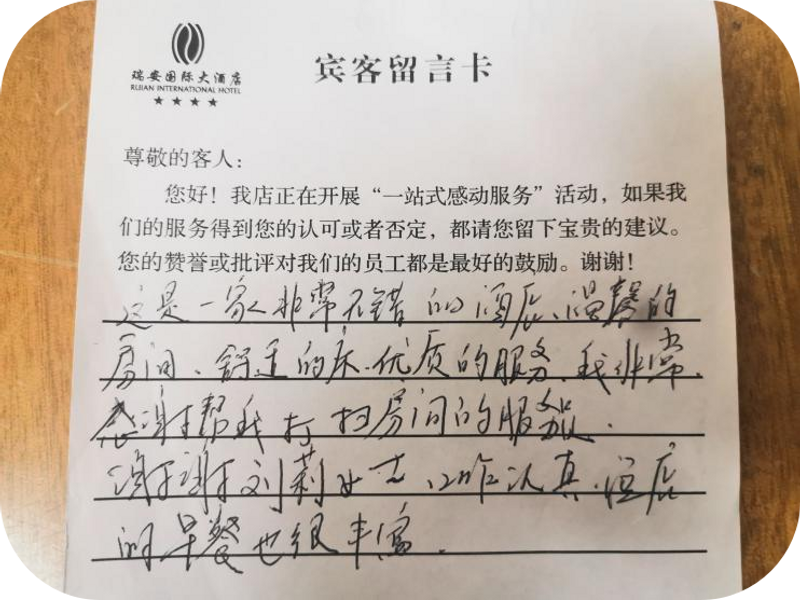 瑞安国际大酒店
RUIAN INTERNATIONAL HOTEL
宾客留言卡
尊敬的客人：
您好！我店正在开展“一站式感动服务”活动，如果我
们的服务得到您的认可或者否定，都请您留下宝贵的建议。
您的赞誉或批评对我们的员工都是最好的鼓励。谢谢！
这是一家非常不错的酒店、温馨的
房间、舒适的床.优质的服务.我非常
感谢帮我打扫房间的服务员.
谢谢刘莉女士，工作认真.酒店
的早餐也很丰富.